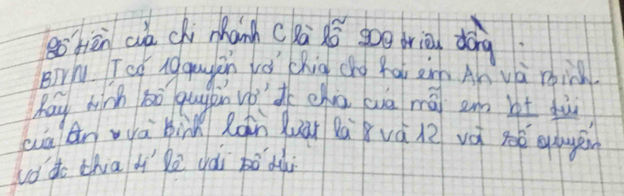 Số tiền của chi nhánh C là lỗ 500 triệu đồng.
BTVN I có 19 quyển vở chia cho hai em An và Bình.
hãy tính số quyển vở đc chia của mỗi em bt tuổi
của An và Bình lần lượt là 8 và 12 và số quyển
vở đc chia tỉ lệ với số tuổi